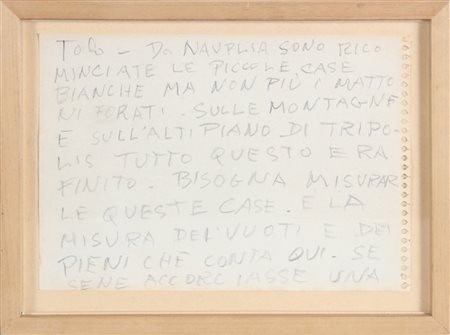 TOLO - DA NAUPLIA SONO RICO
MINCIATE LE PICCOLE CASE
BIANCHE MA NON PIÙ I MATTO
NI FORATI. SULLE MONTAGNE
E SULL'ALTIPIANO DI TRIPO-
LIS TUTTO QUESTO ERA
FINITO. BISOGNA MISURAR
LE QUESTE CASE. E LA
MISURA DEI VUOTI E DEI
PIENI CHE CONTA QUI. SE
SENE ACCORCIASSE UNA